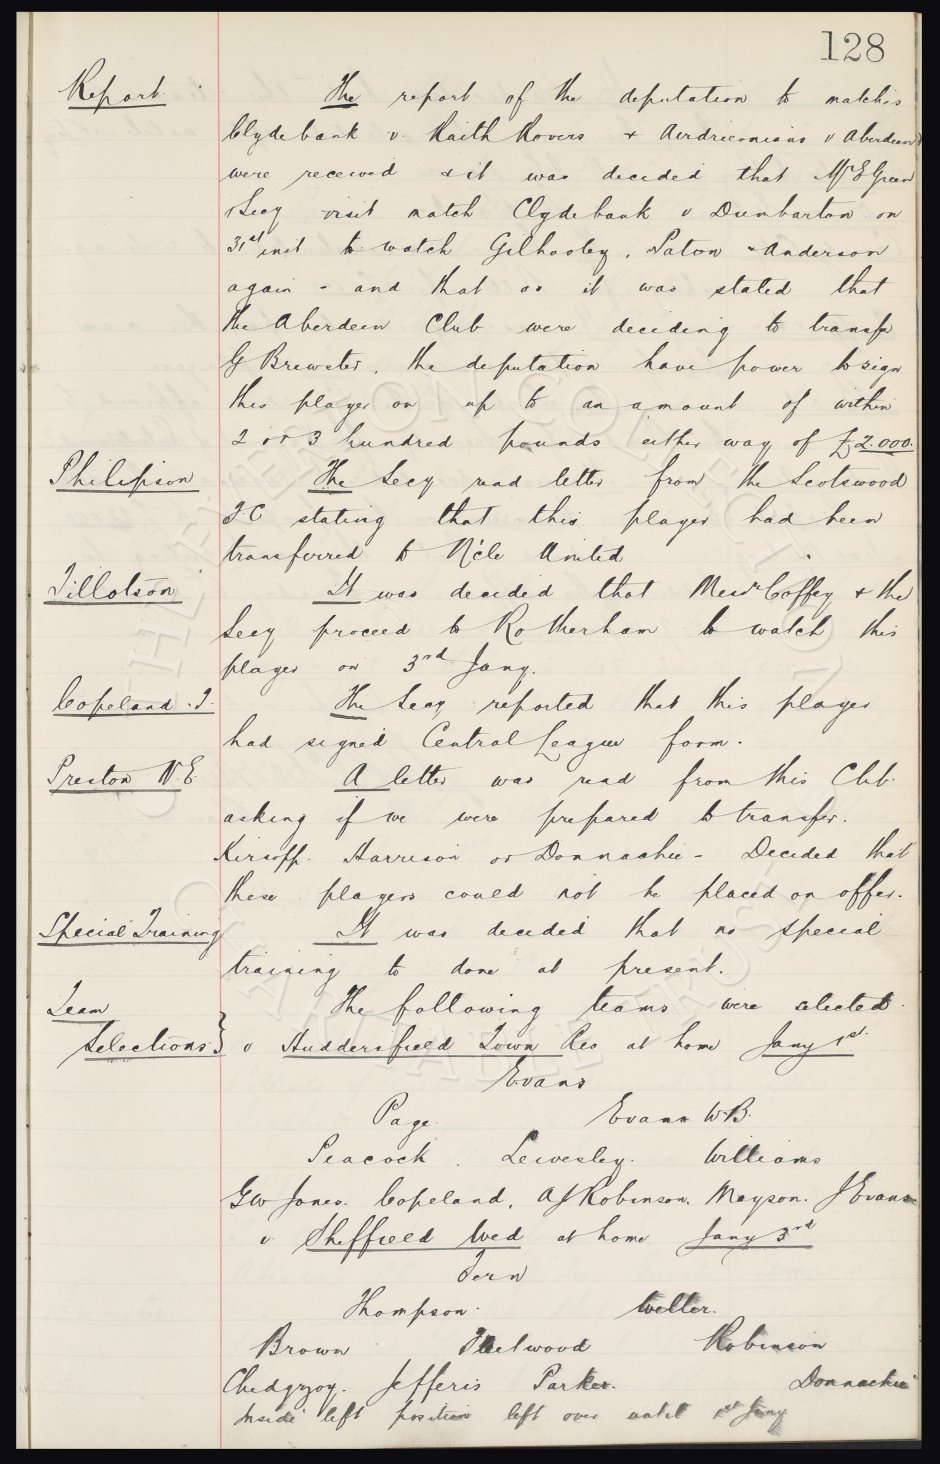 128
Report. The report of the deputation to matches
Clydebank v. Raith Rovers & Airdrieonians v Aberdeen
were received & it was decided that Mr E Green
& Secy visit match Clydebank v Dumbarton on
31st inst to watch Gilhooley, Paton & Anderson
again - and that as it was stated that
the Aberdeen Club were deciding to transfer
G Brewster, the deputation have power to sign
this player on up to an amount of within
2 or 3 hundred pounds either way of £2.000.
Philipson The Secy read letter from the Scotswood
F.C stating that this player had been
transferred to N'cle United
Tillotson It was decided that Messrs Coffey & the
Secy proceed to Rotherham to watch this
player on 3rd Jany.
Copeland. J. The Secy reported that this player
had signed Central League form.
Preston N.E. A letter was read from this Club
asking if we were prepared to transfer.
Kirsopp. Harrison or Donnachie - Decided that
these players could not be placed on offer.
Special Training It was decided that no special
training to done at present.
Team The following teams were selected
Selections } v Huddersfield Town Res at home Jany 1st
Evans
Page. Evans W.B.
Peacock. Lievesley. Williams
GW Jones. Copeland, AJ Robinson. Mayson. J Evans
v Sheffield Wed at home Jany 3rd
Fern
Thompson. Weller.
Brown Fleetwood Robinson
Chedgzoy. Jefferis Parker. Donnachie
Inside left position left over until 1st Jany